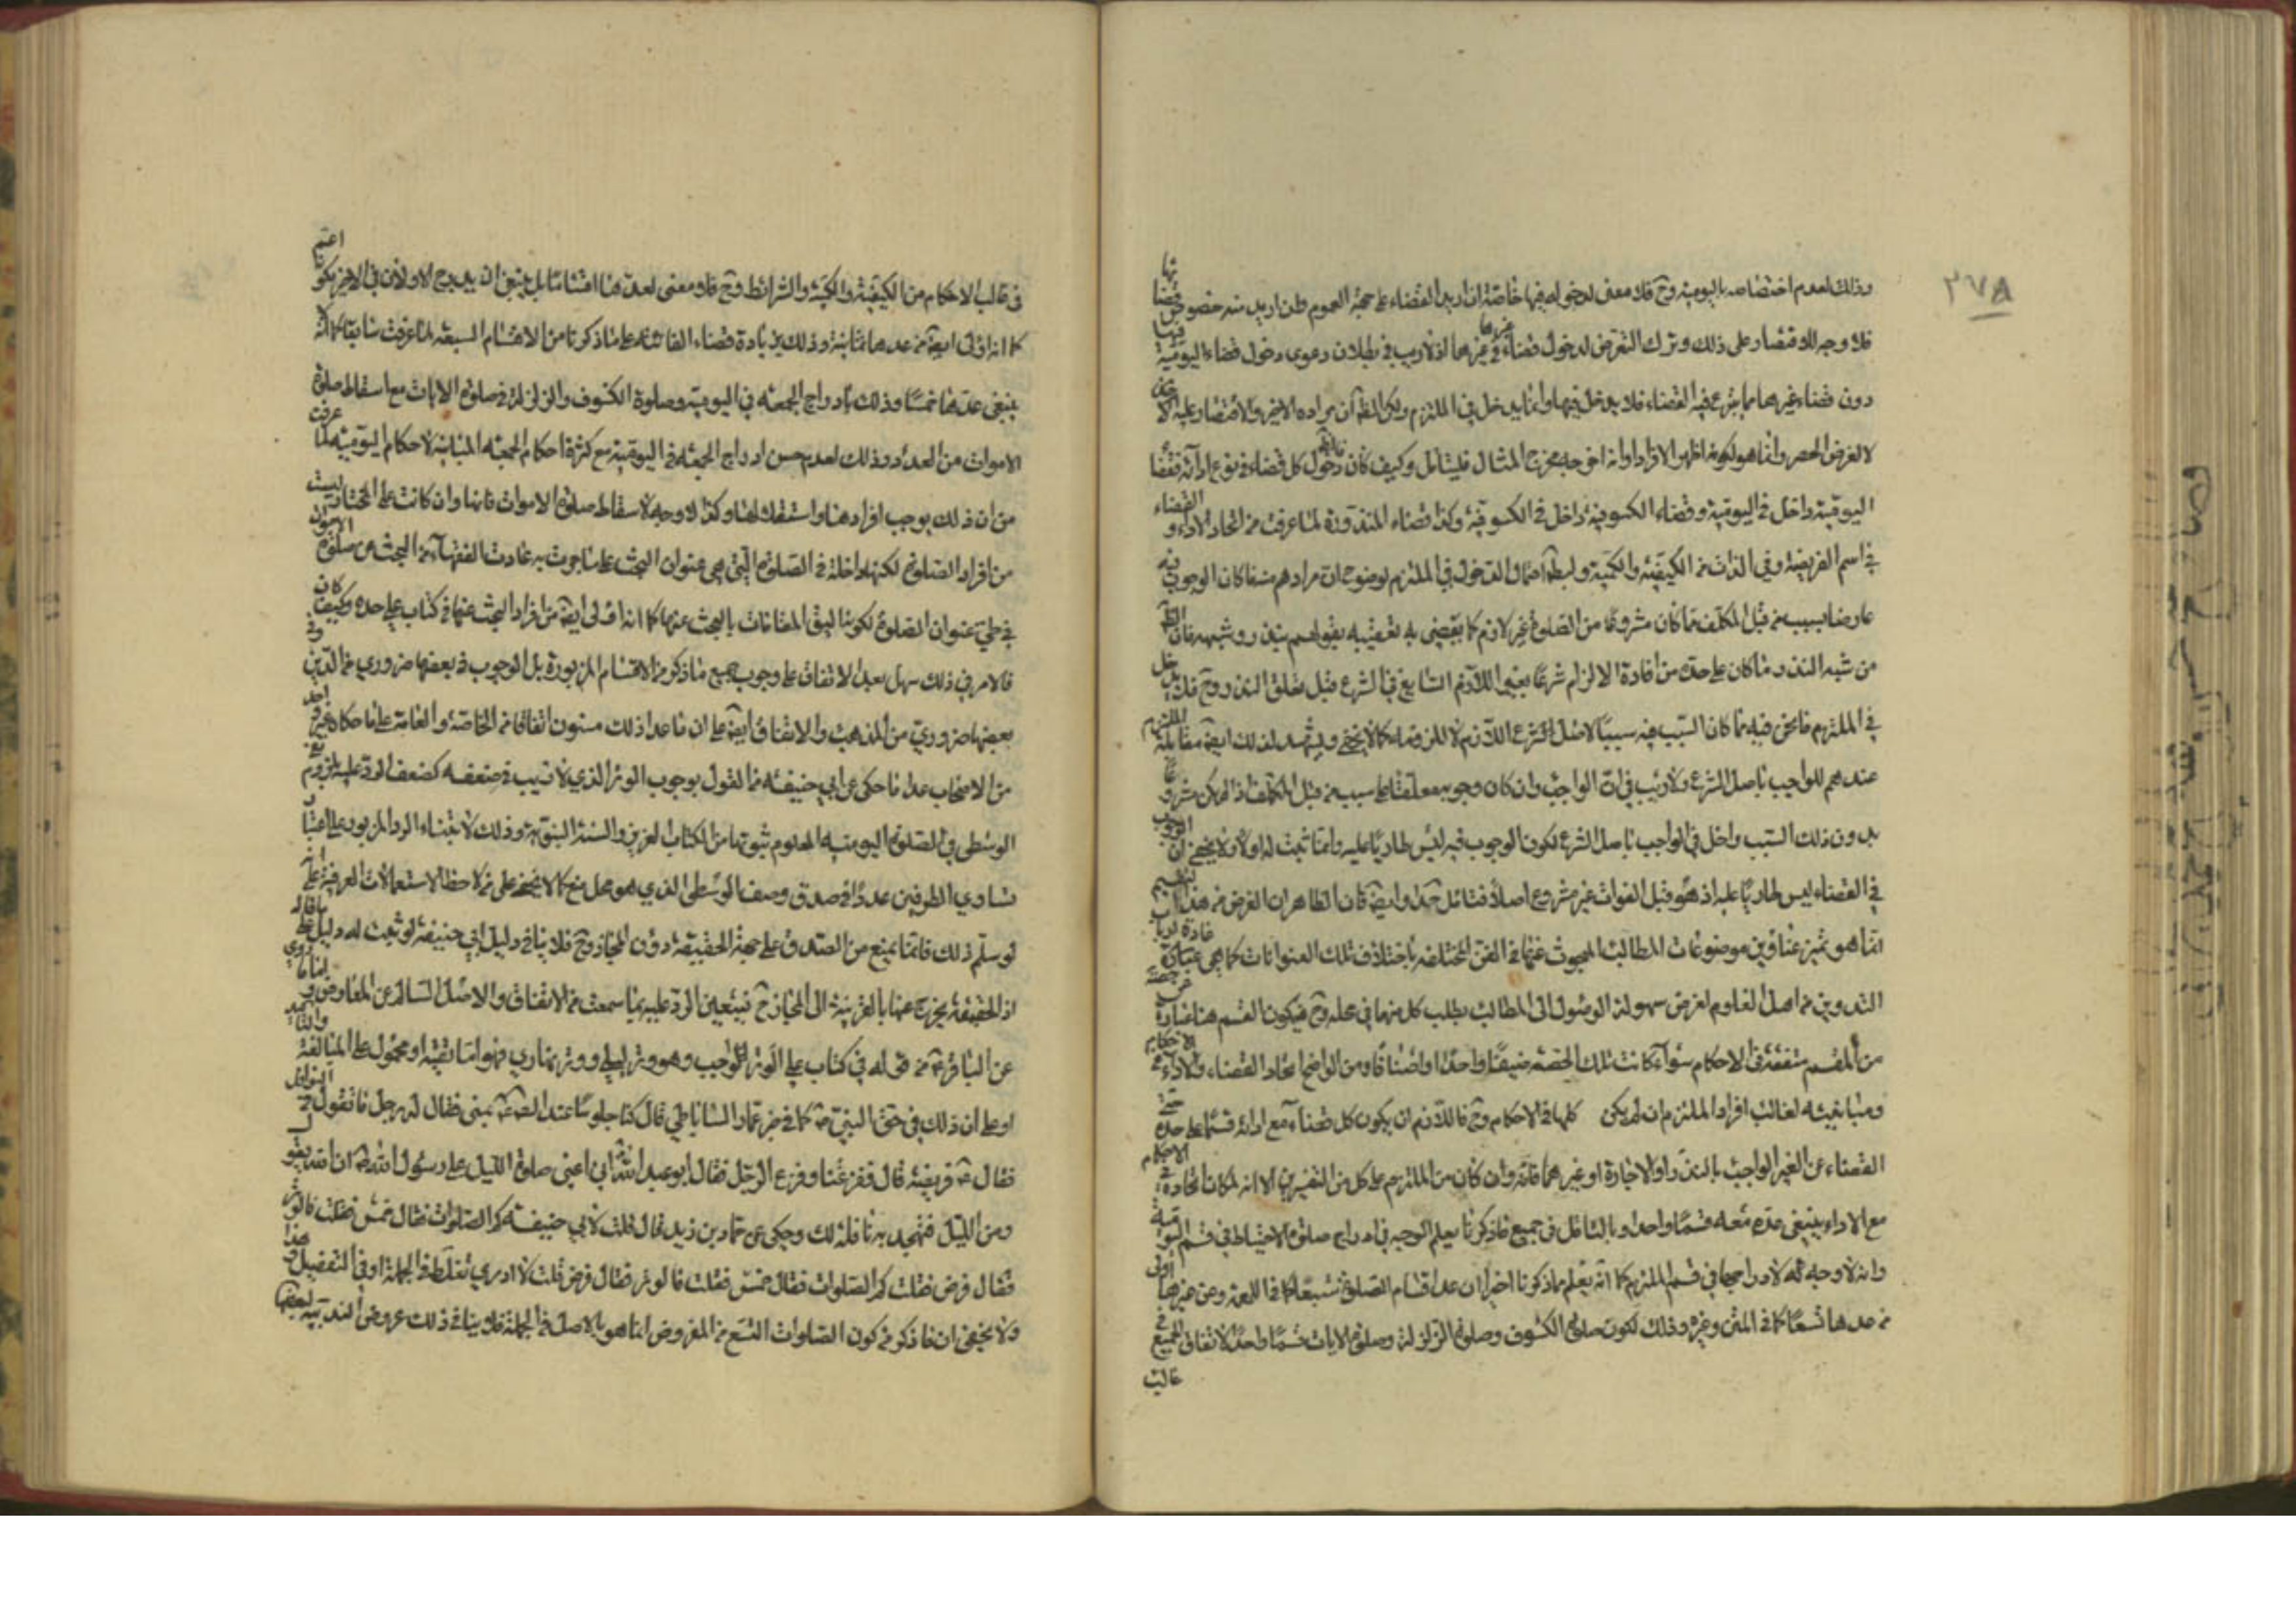 ٣٧٨
وذلك لعدم اختصاصه باليومية وح فلا معنى لدخوله فيها خاصة ان اريد القضاء على جهة العموم وان اريد منه خصوص قضائها
فلا وجه للاقتصار على ذلك وترك التعرض لدخول قضاء غيرها في غيرها اذ لا ريب في بطلان دعوى دخول قضاء اليومية فيها
دون قضاء غيرها مما شرع فيه القضاء فلا يدخل فيها وانما يدخل في الملتزم ولكن الظ ان مراده الاخير والاقتصار عليه
لا لغرض الحصر وانما هو لكونه اظهر الافراد او انه اخرجه مخرج المثال فليتأمل وكيف كان دخول كل قضاء في نوع ادائه فقضاء
اليومية داخل في اليومية وقضاء الكسوفية داخل في الكسوفية وكذا قضاء المنذورة لما عرفت من اتحاد الاداء والقضاء
في اسم الفريضة وفي الذات من الكيفية والكمية الدخول في الملتزم لوضوح ان مرادهم منه ما كان الوجوب فيه
عارضا بسبب من قبل المكلف مما كان مشروعا من الصلوة غير لازم كما يقضي به تعريفه بقولهم بنذر وشبهه فان الظ
من شبه النذر ما كان على حده من افادة الالزام شرعا بغير اللازم الشايع في الشرع قبل تعلق النذر وح فلا يدخل
في الملتزم ما نحن فيه مما كان السبب فيه سببا لاصل الشرع اللازم لا للزومه كما لا يخفى ويشهد لذلك ايضا مقابلة الملتزم
عندهم للواجب باصل الشرع ولا ريب في ان الواجب وان كان وجوبه معلقا على سبب من قبل المكلف اذا لم يكن مشروعا
بدون ذلك السبب داخل في الواجب باصل الشرع لكون الوجوب فيه ليس طاريا عليه وانما ثبت له اولا ولا يخفى ان الوجوب
في القضاء ليس طاريا عليه اذ هو قبل الفوات غير مشروع اصلا فتأمل جدا وايضا فان الظاهر ان الغرض من هذا التقسيم
انما هو تميز عناوين موضوعات المطالب المبحوث عنها في الفن المختلفة باختلاف تلك العنوانات كما هي عادة ارباب
التدوين من اهل العلوم لغرض سهولة الوصول الى المطالب بطلب كل منها في محله وح فيكون القسم هنا عبارة عن حصة
من المقسم متفقة في الاحكام سواء كانت تلك الحصة صنفا واحدا او اصنافا ومن الواضح اتحاد القضاء والاداء في الاحكام
ومباينته لغالب افراد الملتزم ان لم يكن كلها في الاحكام وح فاللازم ان يكون كل قضاء مع ادائه قسما على حده حتى
القضاء عن الغير الواجب بالنذر او الاجارة او غيرهما فانه وان كان من الملتزم على كل من التفسيرين الا انه لمكان اتحاده في الاحكام
مع الاداء ينبغي عده معه قسما واحدا وبالتأمل في جميع ما ذكرنا يعلم الوجه في ادراج صلوة الاحتياط في قسم اليومية
وانه لا وجه له لادراجها في قسم الملتزم كما انه يعلم مما ذكرنا اخيرا ان عد اقسام الصلوة سبعا كما في اللمعة وعن غيرها اولى
من عدها تسعا كما في المتن وغيره وذلك لكون صلوة الكسوف وصلوة الزلزلة وصلوة الايات قسما واحدا لاتفاق الجميع في
غالب
الاحكام من الكيفية والكمية والشرائط وح فلا معنى لعدها اقساما بل ينبغي ان يدرج الاولان في الاخير لكونه اعم
كما انه اولى ايضا من عدها ثمانية وذلك بزيادة قضاء الفائتة على ما ذكرنا من الاقسام السبعة لما عرفت سابقا كما انه لا
ينبغي عدها خمسا وذلك بادراج الجمعة في اليومية وصلوة الكسوف والزلزلة في صلوة الايات مع اسقاط صلوة
الاموات من العدد وذلك لعدم حسن ادراج الجمعة في اليومية مع كثرة احكام الجمعة المباينة لاحكام اليومية لما عرفت
من ان ذلك يوجب افرادها واستقلالها وكذا لا وجه لاسقاط صلوة الاموات فانها وان كانت على المختار ليست
من افراد الصلوة لكنها داخلة في الصلوة التي هي عنوان البحث على ما جرت به عادت الفقهاء من البحث عن صلوة الاموات
في طي عنوان الصلوة لكونه اليق المقامات بالبحث عنها كما انه اولى ايضا من افراد البحث عنها في كتاب على حده وكيف كان
فالامر في ذلك سهل بعد الاتفاق على وجوب جميع ما ذكر من الاقسام المزبورة بل الوجوب في بعضها ضروري من الدين وفي
بعضها ضروري من المذهب والاتفاق ايضا على ان ما عدا ذلك مسنون اتفاقا من الخاصة والعامة على ما حكاه غير واحد
من الاصحاب عدا ما حكي عن ابي حنيفة من القول بوجوب الوتر الذي لا ريب في ضعفه كضعف الرد عليه بلزوم رفع
الوسطى في الصلوة اليومية المعلوم ثبوتها من الكتاب العزيز والسنة النبوية وذلك لابتناء الرد المزبور على اعتبار
تساوي الطرفين عددا في صدق وصف الوسطى الذي هو محل منع كما لا يخفى على من لاحظ الاستعمالات العرفية على انه
لو سلم ذلك فانما يمنع من الصدق على جهة الحقيقة دون المجاز وح فلا ينافي دليل ابي حنيفة لو ثبت له دليل على ما قاله
اذ الحقيقة يخرج عنها بالقرينة الى المجاز ح فيتعين الرد عليه بما سمعت من الاتفاق والاصل السالم عن المعارض واما ما روي
عن الباقر ع من قوله في كتاب علي الوتر الواجب وهو وتر ليلي ووتر نهاري فهو اما تقية او محمول على المبالغة والتاكيد
او على ان ذلك في حق النبي ص كما في خبر عمار الساباطي قال كنا جلوسا عند الصادق ع بمنى فقال له رجل ما تقول في النوافل
فقال ع فريضة قال ففزعنا وفزع الرجل فقال ابو عبد الله ع اني اعني صلوة الليل على رسول الله ص ان الله يقول
ومن الليل فتهجد به نافلة لك وحكي عن حماد بن زيد قال قلت لابي حنيفة كم الصلوات فقال خمس فقلت فالوتر
فقال فرض فقلت كم الصلوات فقال خمس فقلت فالوتر فقال فرض قلت لا ادري تغلط في الجملة او في التفصيل هذا
ولا يخفى ان ما ذكر من كون الصلوات التسع من المفروض انما هو بالاصل في الجملة فلا ينافي ذلك عروض الندبية لبعضها